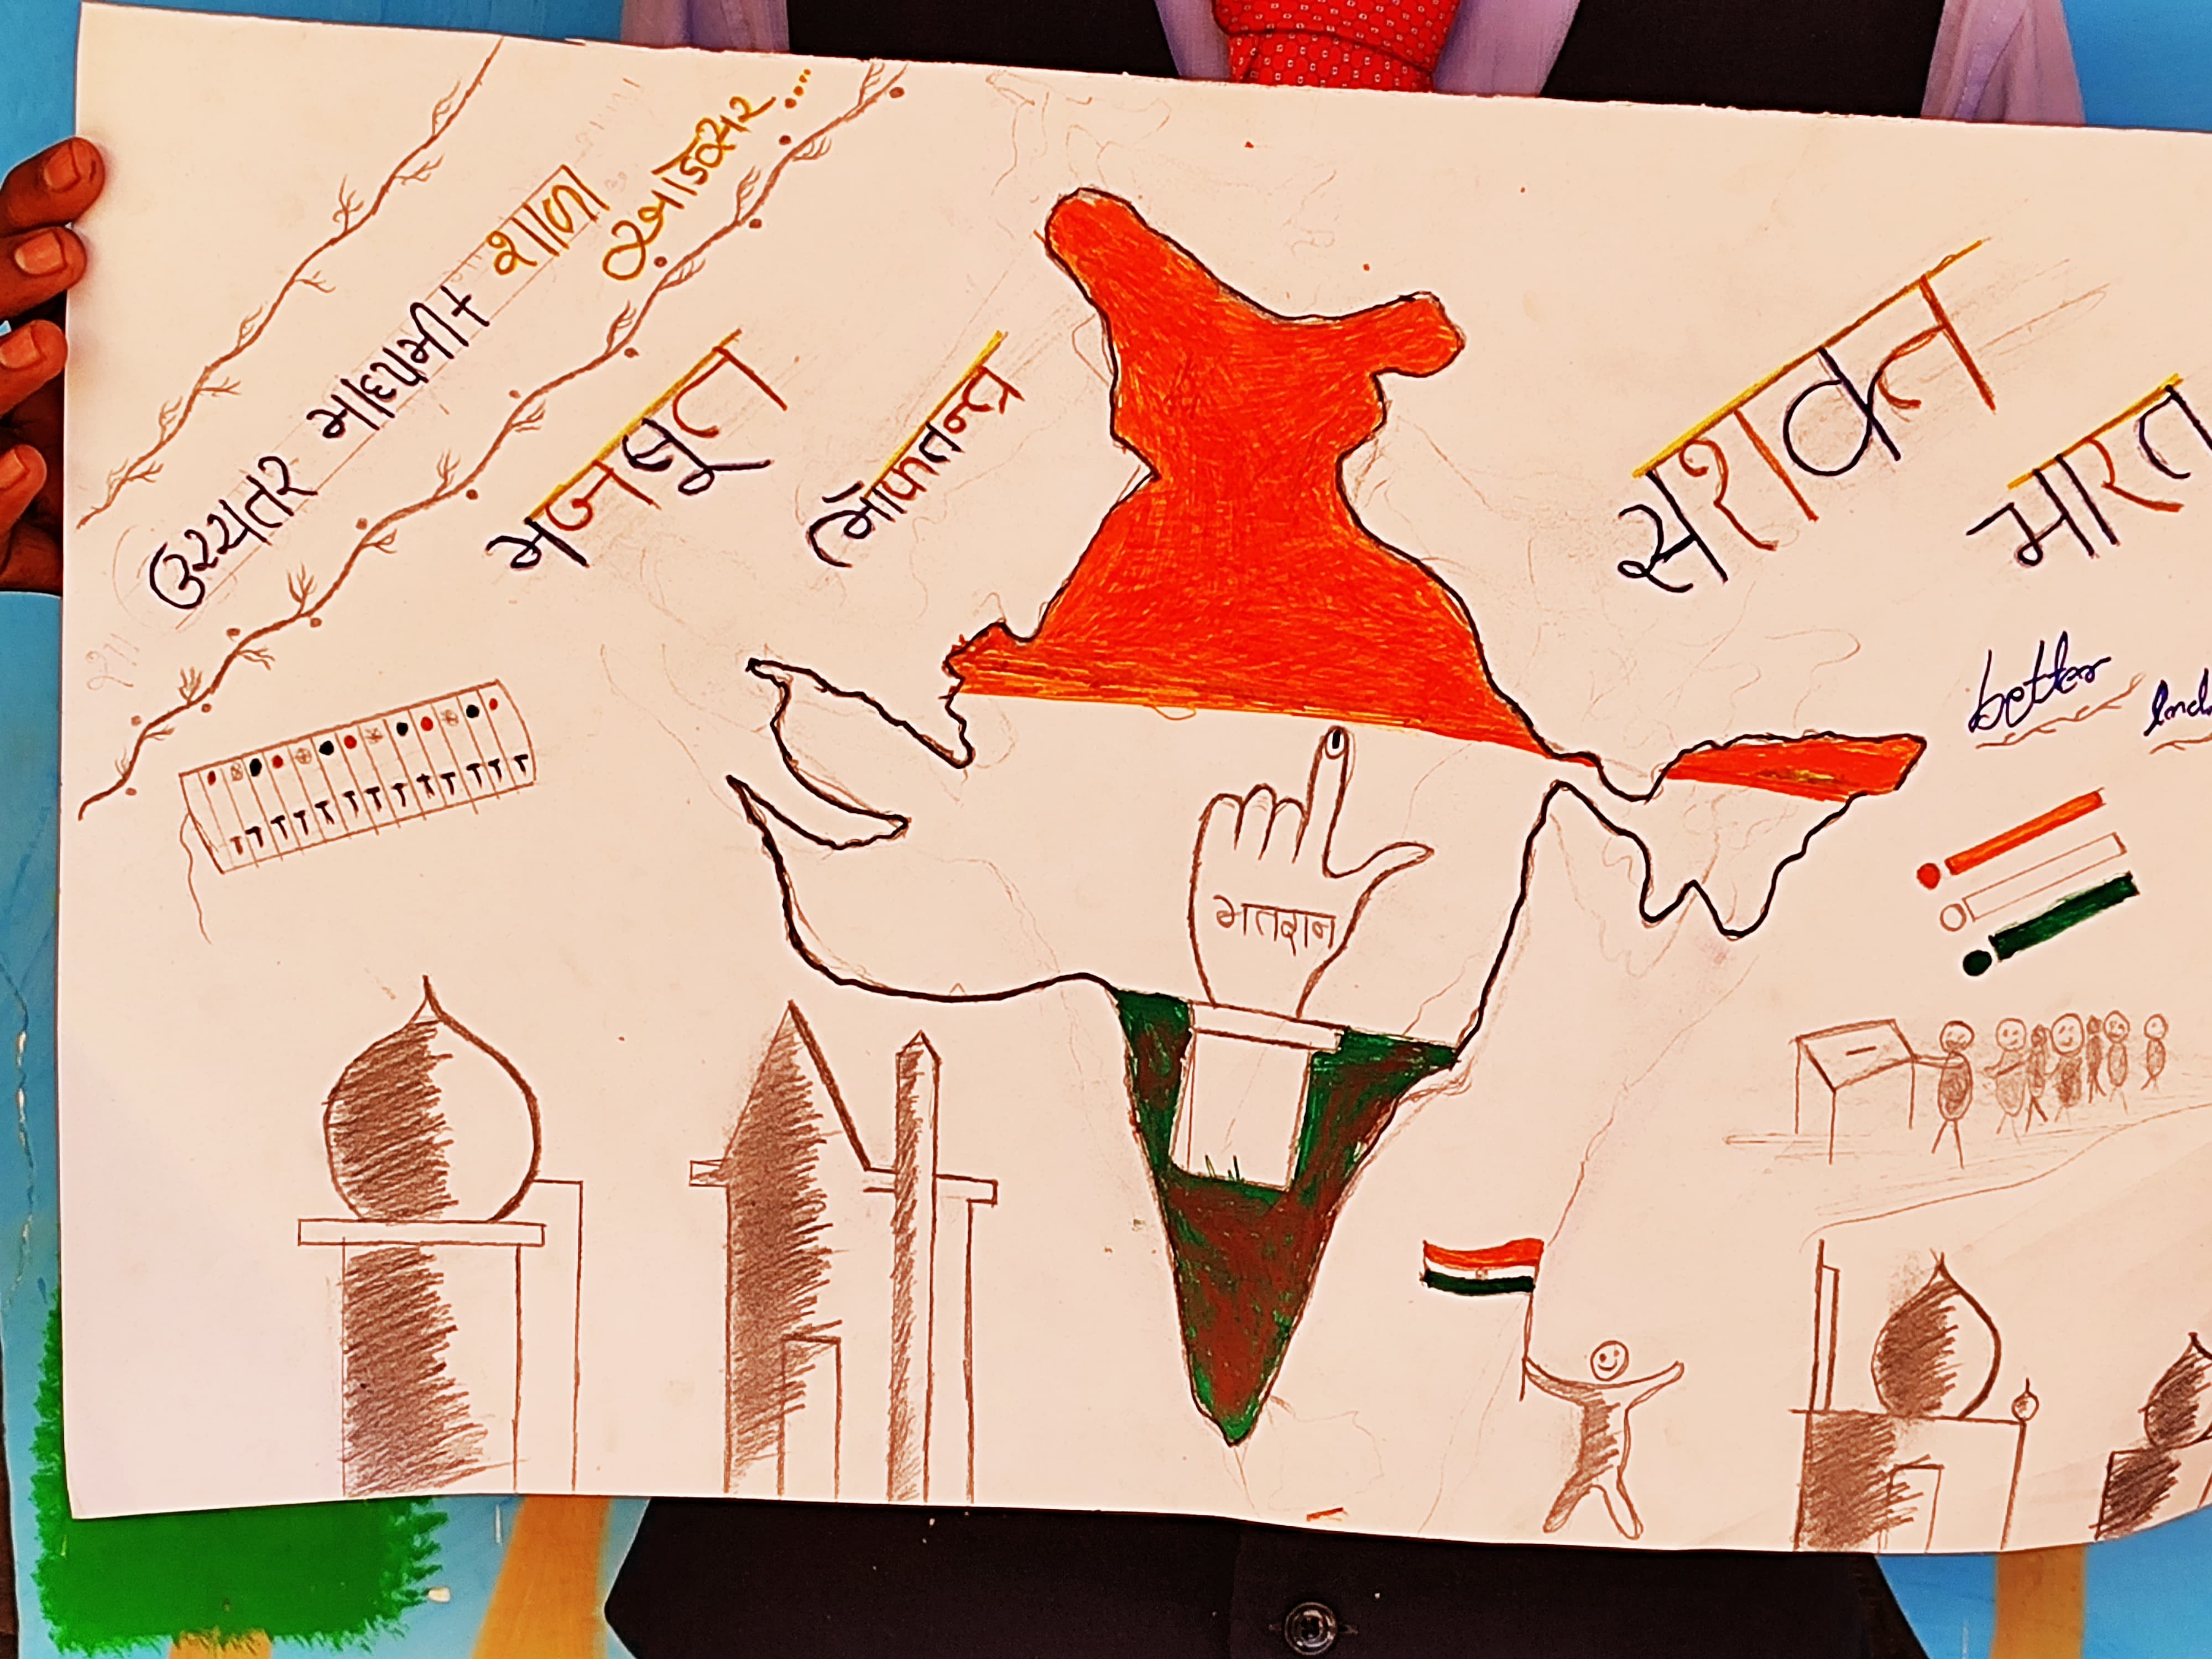 ઉચ્ચતર માધ્યમીક શાળા
मजबूत
लोकतन्त्र
सशक्त
भारत
better
मतदान